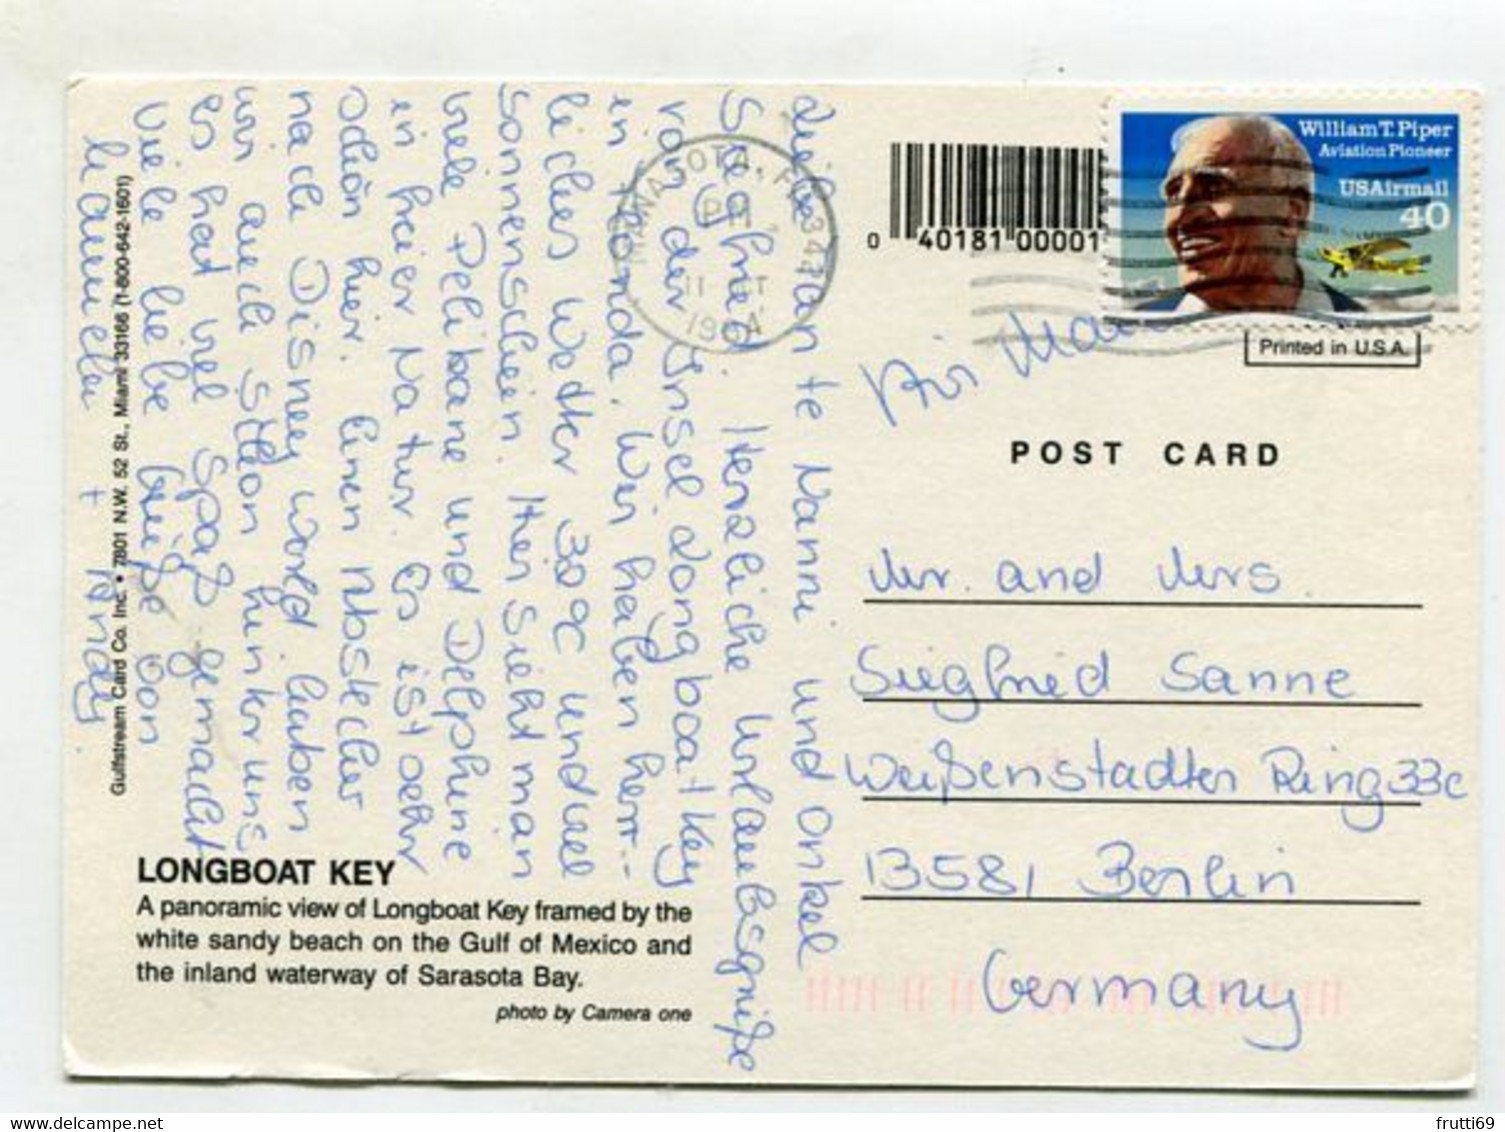 Liebe Tante Nanni und Onkel
Siegfried. Herzliche Urlaubsgrüße
von der Insel Longboat Key
in Florida. Wir haben herr-
liches Wetter 30°C und viel
Sonnenschein. Hier sieht man
viele Pelikane und Delphine
in freier Natur. Es ist sehr
schön hier. Einen Abstecher
nach Disney World haben
wir auch schon hinter uns
es hat viel Spaß gemacht
Viele liebe Grüße von
+ Andy
Gulfstream Card Co. Inc. • 7801 N.W. 52 St., Miami 33166 (1-800-642-1601)
LONGBOAT KEY
A panoramic view of Longboat Key framed by the
white sandy beach on the Gulf of Mexico and
the inland waterway of Sarasota Bay.
photo by Camera one
MANASOTA, FL 342
PM
11
1994
0 40181 00001
William T. Piper
Aviation Pioneer
USAirmail
40
Printed in U.S.A.
Air Mail
POST CARD
Mr. and Mrs.
Siegfried Sanne
Weißenstadter Ring 33c
13581 Berlin
Germany
frutti69